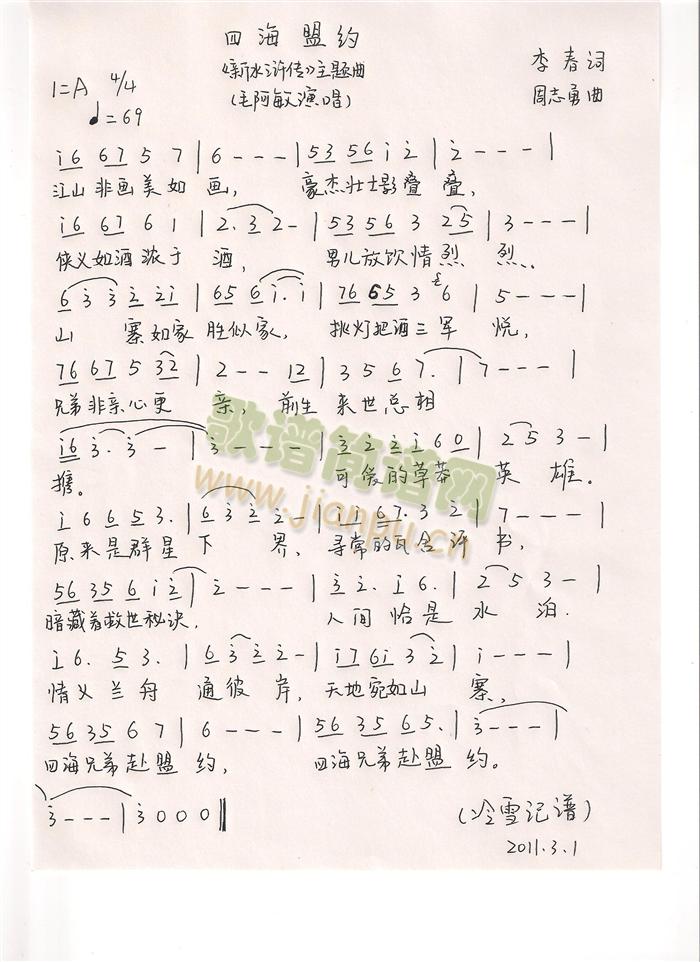 四海盟约
《新水浒传》主题曲
(毛阿敏演唱)
李春词
周志勇曲
1=A 4/4
♩=69
i6 67 5 7 | 6 - - - | 53 56 i 2 | 2 - - - |
江山非画美如画, 豪杰壮士影叠叠,
i6 67 6 1 | 2.3 2 - | 53 56 3 25 | 3 - - - |
侠义如酒浓于酒, 男儿放饮情烈烈、
6 3 3 2 2i | 65 6 i. i | 76 65 3 6 | 5 - - - |
山寨如家胜似家, 挑灯把酒三军悦,
76 67 5 32 | 2 - - 12 | 3 5 6 7. | 7 - - - |
兄弟非亲心更亲, 前生来世总相
i6 3. 3 - | 3 - - - | 3 2 2 i 6 0 | 2 5 3 - |
携。 可俊的草莽英雄。
i 6 6 5 3. | 6 3 2 2 - | i i 67. 3 2 | 7 - - - |
原来是群星下界, 寻常的瓦舍评书,
56 35 6 i 2 | 2 - - - | 3 2. i 6. | 2 5 3 - |
暗藏着救世秘诀, 人间恰是水泊.
i 6. 5 3. | 6 3 2 2 - | i7 6i 3 2 | i - - - |
情义兰舟通彼岸, 天地宛如山寨,
56 35 6 7 | 6 - - - | 56 35 65. | 3 - - - |
四海兄弟赴盟约, 四海兄弟赴盟约。
3 - - - | 3 0 0 0 ‖
(冷雪记谱)
2011.3.1
歌谱简谱网
www.jianpu.cn